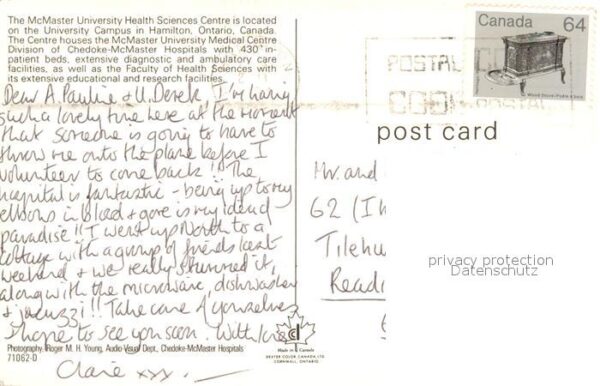 The McMaster University Health Sciences Centre is located
on the University Campus in Hamilton, Ontario, Canada.
The Centre houses the McMaster University Medical Centre
Division of Chedoke-McMaster Hospitals with 430 in-
patient beds, extensive diagnostic and ambulatory care
facilities, as well as the Faculty of Health Sciences with
its extensive educational and research facilities.
Dear A. Pauline & U. Derek, I'm having
such a lovely time here at the moment
that someone is going to have to
throw me onto the plane before I
volunteer to come back!! The
hospital is fantastic - being up to my
elbows in blood & gore is my idea of
paradise!! I went up North to a
cottage with a group of friends last
weekend & we really it,
along with the microwave, dishwasher
& jacuzzi!! Take care of yourselves
hope to see you soon. With love
Claire xxx.
Photography: Roger M. H. Young, Audio-Visual Dept., Chedoke-McMaster Hospitals
71062-D
Made in Canada
DEXTER COLOR CANADA, LTD.
CORNWALL, ONTARIO
Canada 64
POSTAL CO
CODE POSTAL
post card
Mr. and
62 (
Tilehu
Readi
privacy protection
Datenschutz